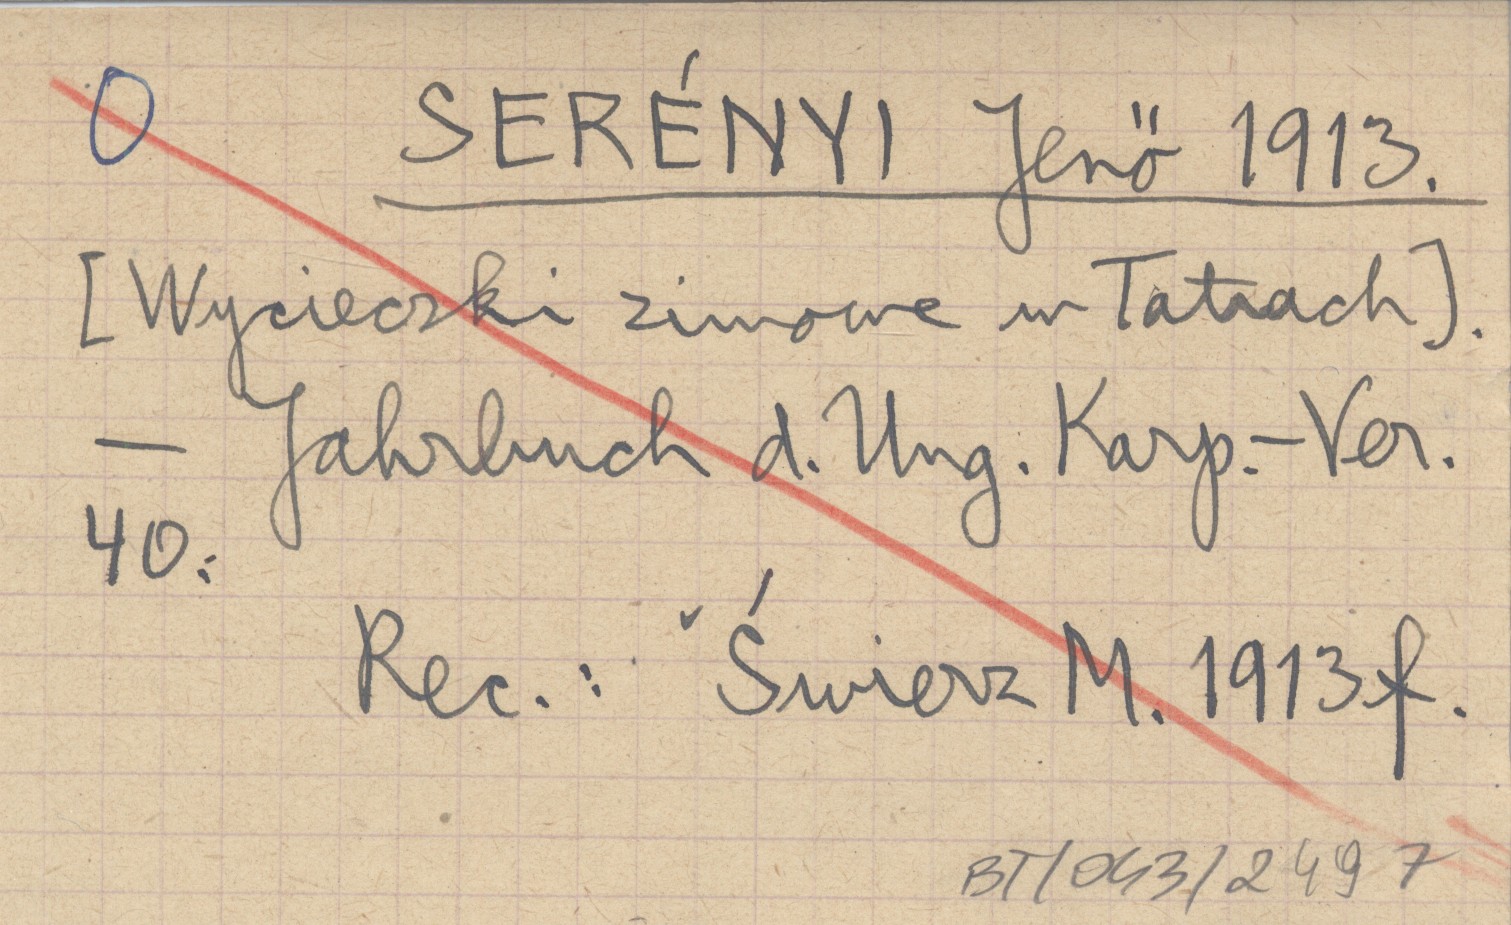 0 SERÉNYI Jenő 1913.
[Wycieczki zimowe w Tatrach].
— Jahrbuch d. Ung. Karp.-Ver.
40:
Rec.: Świerz M. 1913f.
BT/043/2497